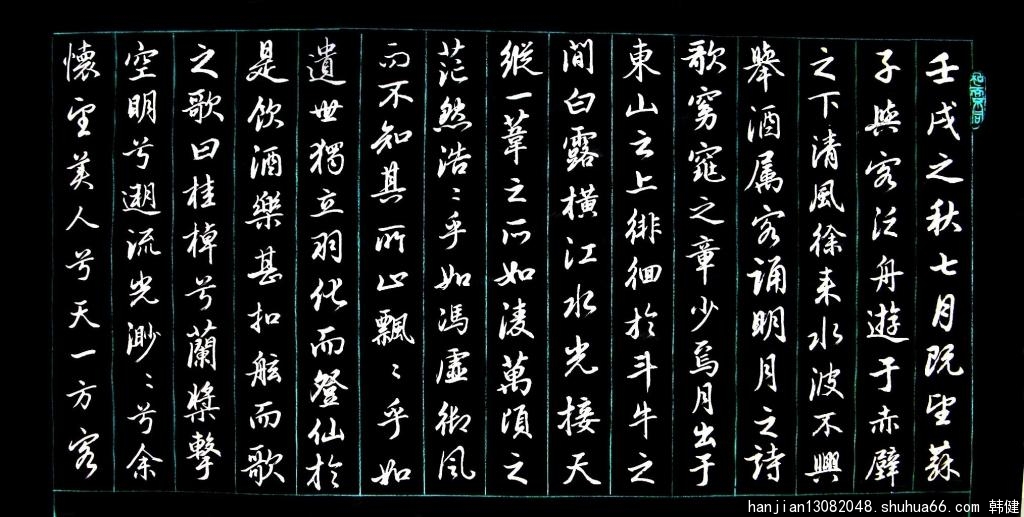 壬戌之秋七月既望蘇
子與客泛舟遊于赤壁
之下清風徐来水波不興
舉酒属客誦明月之詩
歌窈窕之章少焉月出于
東山之上徘徊於斗牛之
間白露横江水光接天
縱一葦之所如淩萬頃之
茫然浩〻乎如馮虛御風
而不知其所止飄〻乎如
遺世獨立羽化而登仙於
是飲酒樂甚扣舷而歌
之歌曰桂棹兮蘭槳擊
空明兮遡流光渺〻兮余
懷望美人兮天一方客
hanjian13082048.shuhua66.com 韩健